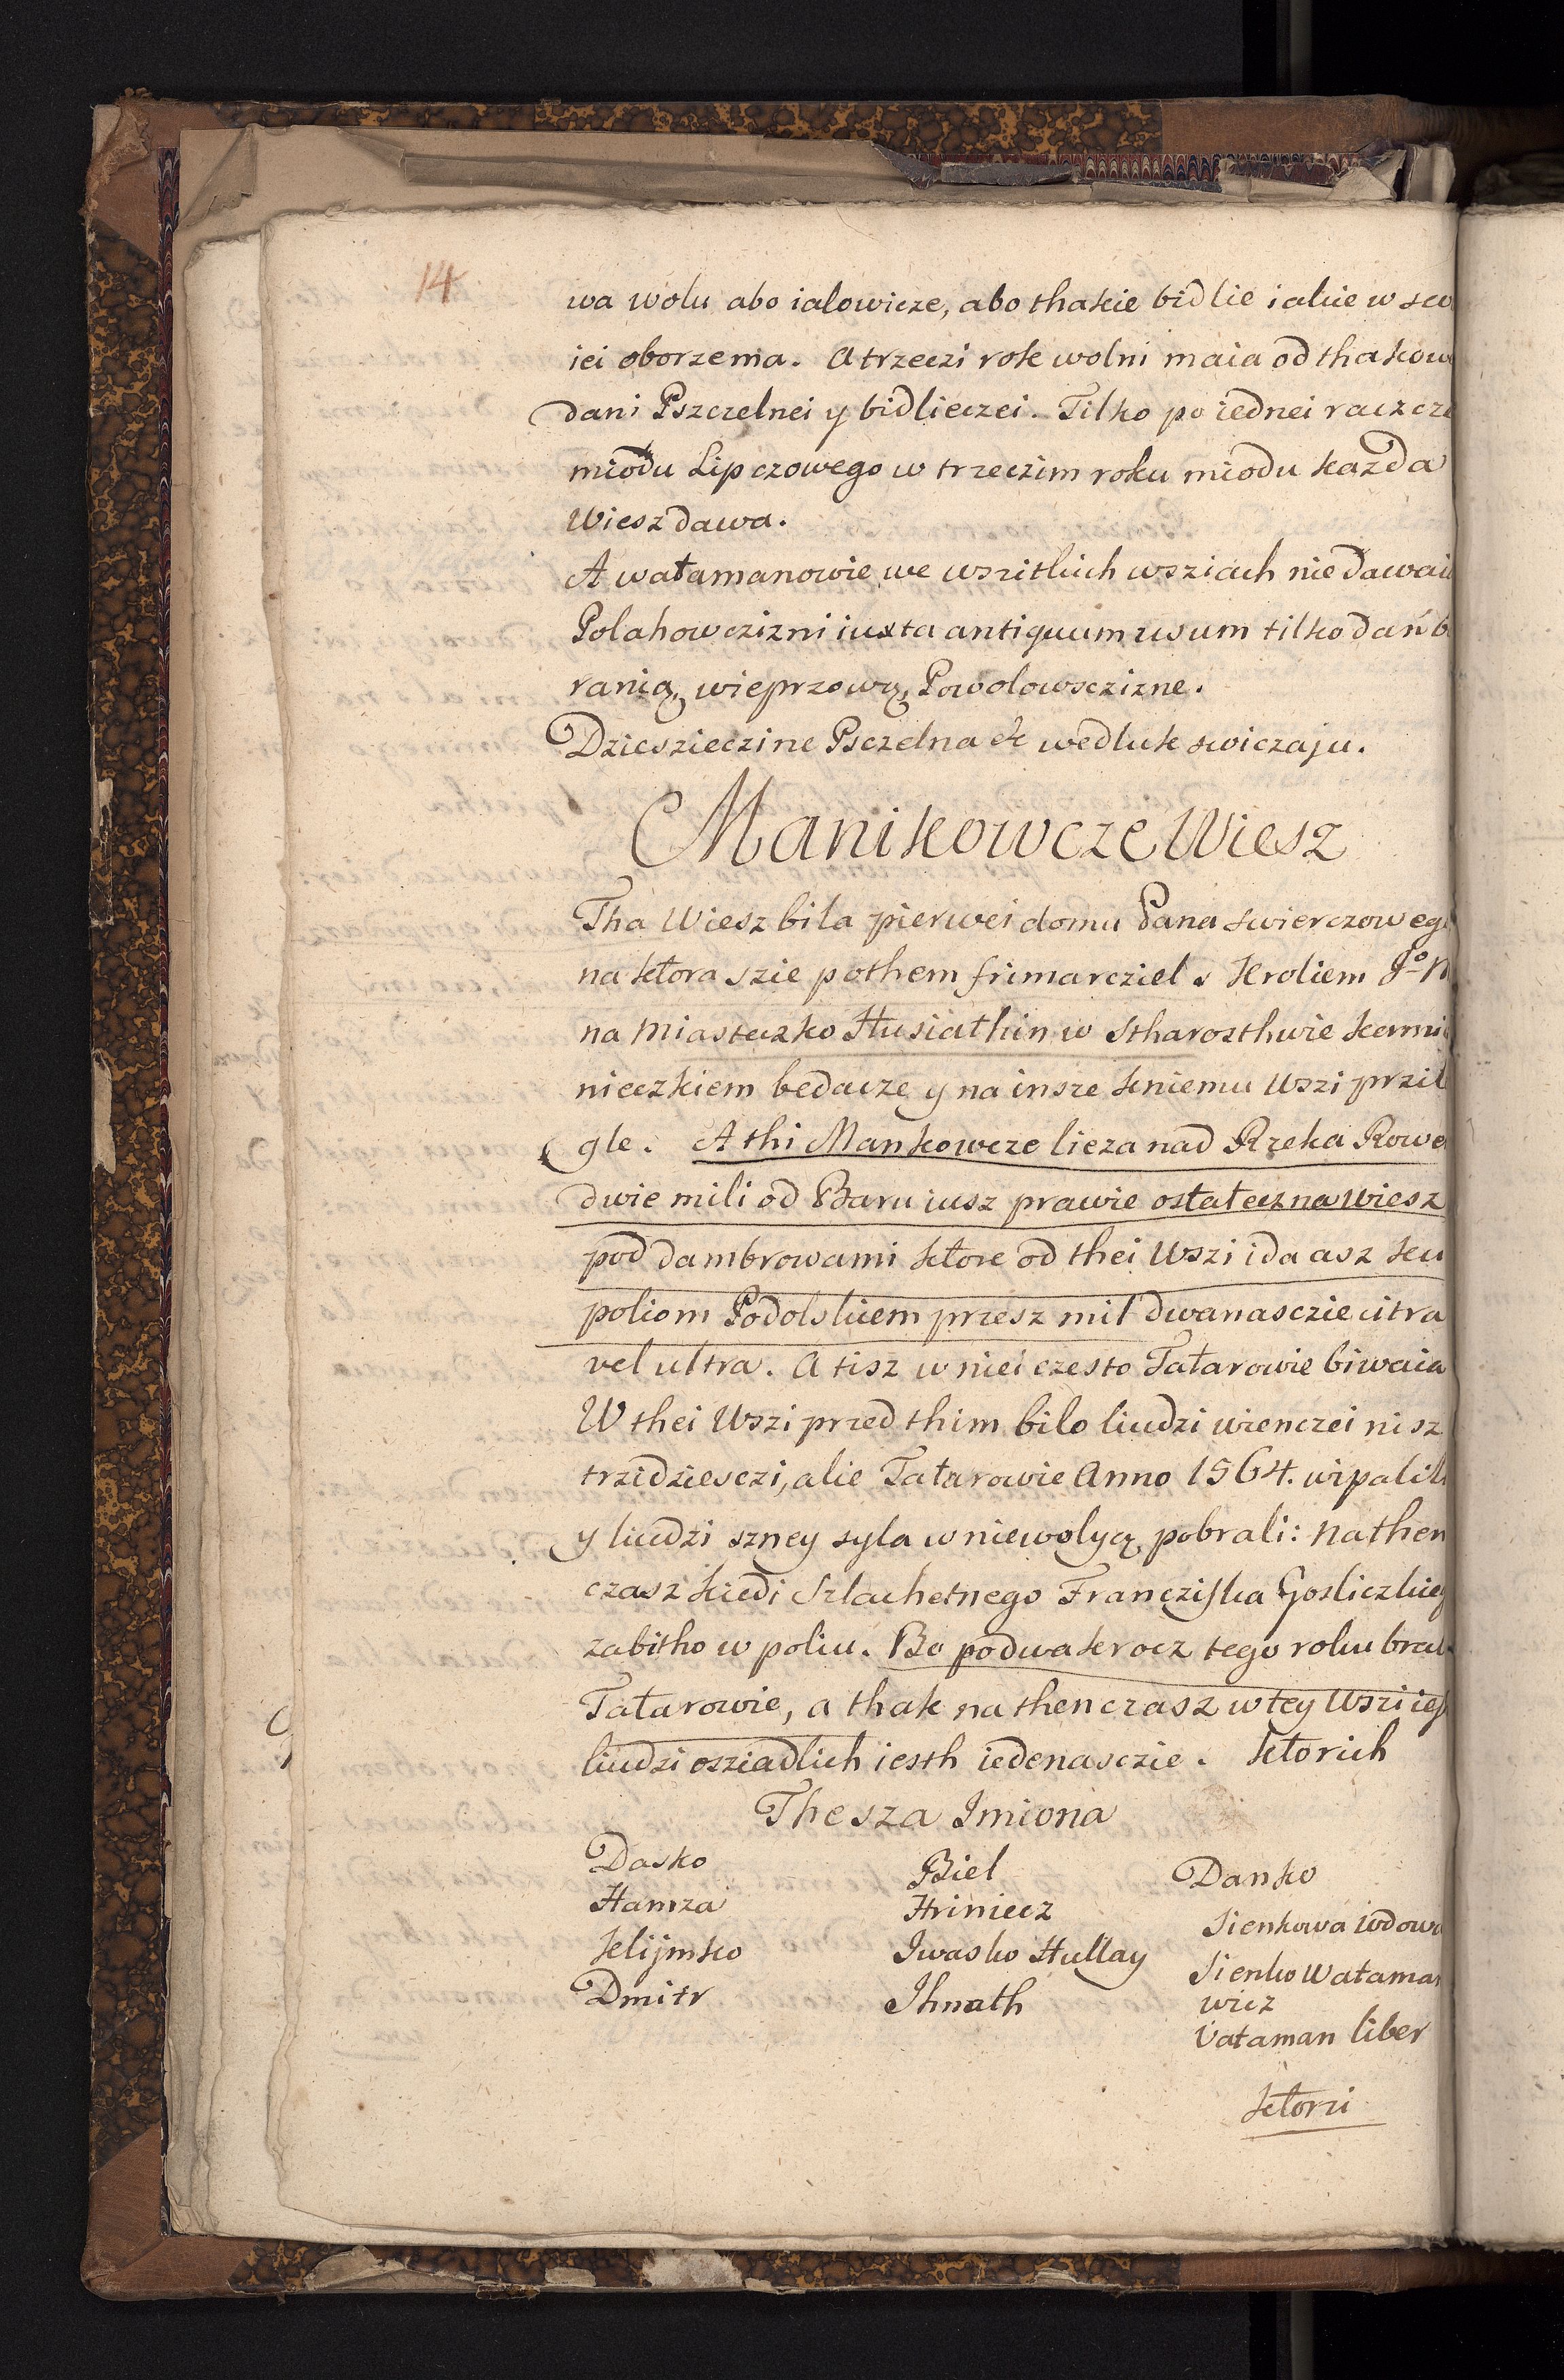 14
wa wolu abo ialowicze, abo thakie bidlie iakie w swo
iei oborze ma. A trzeczi rok wolni maia od thakow
dani Pszczelnei y bidlieczei. Tilko po iednei raczcze
miodu Lipczowego w trzeczim roku miodu kazda
Wiesz dawa.
A watamanowie we wszitkich wsziach nie dawaią
Polahowczizni iuxta antiquum usum tilko dań b
ranią, wieprzową, Powolowsczizne.
Dzieszieczine Psczelna &c wedluk swiczaju.
Manikowcze Wiesz
Tha Wiesz bila pierwei domu Pana Swierczoweg
na ktora szie pothem frimarcziel s Kroliem Jo
na Miasteczko Husiathin w Stharosthwie Kermie
nieczkiem bedacze y na insze kniemu Wszi przile
gle. A thi Mankowcze lieza nad Rzeka Rowe
dwie mili od Baru iusz prawie ostateczna Wiesz
pod dambrowami ktore od thei Wszi ida asz ku
poliom Podolskiem przesz mil dwanasczie citra
vel ultra. A tisz w niei czesto Tatarowie biwaia
W thei Wszi przed thim bilo liudzi wienczei nisz
trzidziesczi, alie Tatarowie Anno 1564. wipalili
y liudzi szney syla w niewolyą pobrali: nathen
czasz kiedi Szlachetnego Francziska Gosliczkieg
zabitho w poliu. Bo podwakrocz tego roku brali
Tatarowie, a thak na then czasz w tey Wszi ies
liudzi osziadlich iesth iedenasczie. Ktorich
The sza Imiona
Dasko
Hamza
Klijmko
Dmitr
Biel
Hriniecz
Iwasko Hullay
Ihnath
Danko
Sienkowa Wdowa
Sienko Wataman
wicz
Vataman liber
Ktorzi